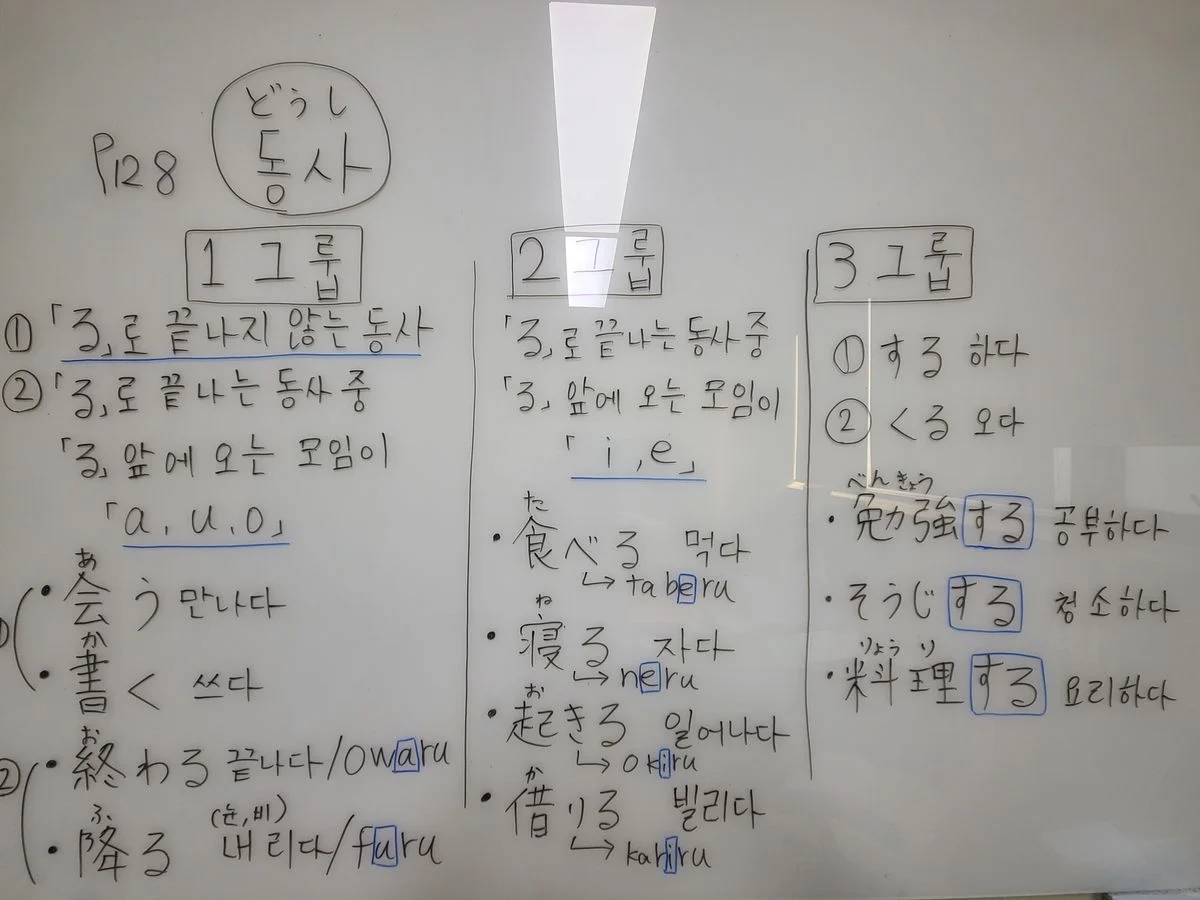 P128
どうし
동사
1 그룹
① 「る」로 끝나지 않는 동사
② 「る」로 끝나는 동사 중
「る」 앞에 오는 모임이
「a, u, o」
あ
・会う 만나다
か
・書く 쓰다
お
・終わる 끝나다/owaru
ふ (눈, 비)
・降る 내리다/furu
2 그룹
「る」로 끝나는 동사 중
「る」 앞에 오는 모임이
「i, e」
た
・食べる 먹다
↳ taberu
ね
・寝る 자다
↳ neru
お
・起きる 일어나다
↳ okiru
か
・借りる 빌리다
↳ kariru
3 그룹
① する 하다
② くる 오다
べんきょう
・勉強する 공부하다
・そうじする 청소하다
りょうり
・料理する 요리하다